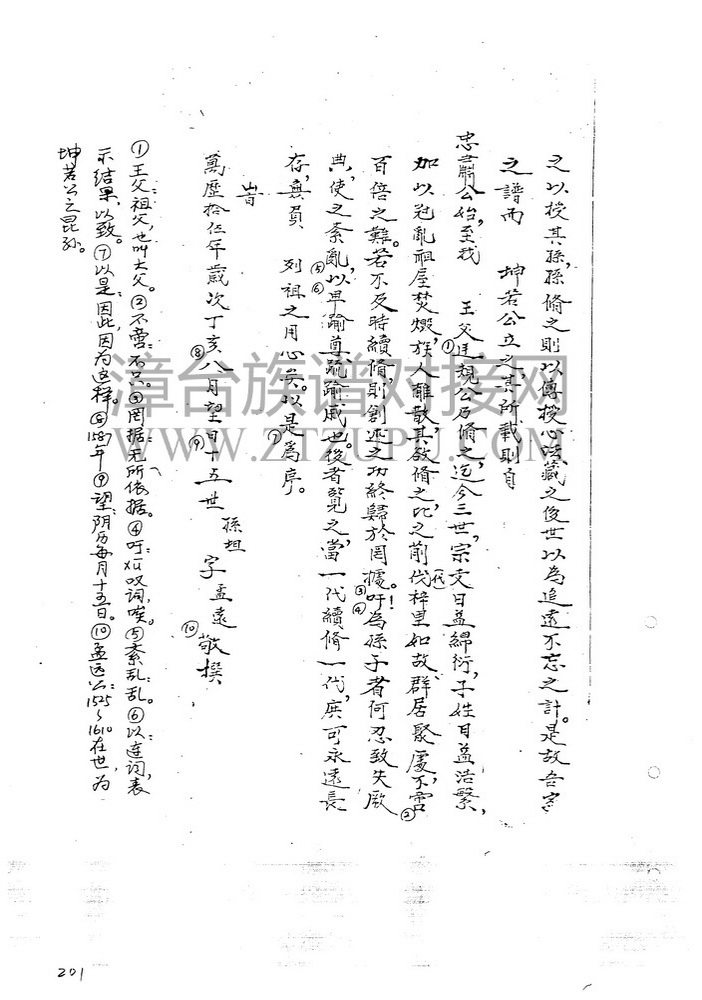 之以授其孫,孫脩之則以傳授心法,藏之後世以為追遠不忘之計。是故吾宗
之譜而 坤若公立之,其所載則自
忠肅公始,至我 王父①廷視公乃脩之,迄今三世,宗支日益綿衍,子姓日益浩繁,
加以寇亂祖屋焚燬,族人離散,其啟脩之,比之前伐(代)梓里如故群居聚處,不啻②
百倍之難。若不及時續脩,則創述之功終歸於罔據③。吁④!為孫子者何忍致失厥
典,使之紊亂⑤,以⑥卑踰尊,疏踰戚也。後者覽之,當一代續脩一代,庶可永遠長
存,無負 列祖之用心矣。以是⑦為序。
旹
萬歷拾伍年歲次丁亥⑧八月望⑨日十五世 孫坦 字孟遠⑩敬撰
①王父:祖父,也叫大父。②不啻:不只。③罔据:无所依据。④吁:xū叹词,唉。⑤紊乱:乱。⑥以:连词,表
示结果,以致。⑦以是:因此,因为这样。⑧1587年⑨望:阴历每月十五日。⑩孟远公:1525~1610在世,为
坤若公之昆孙。
201
漳台族谱对接网
WWW.ZTZUPU.COM